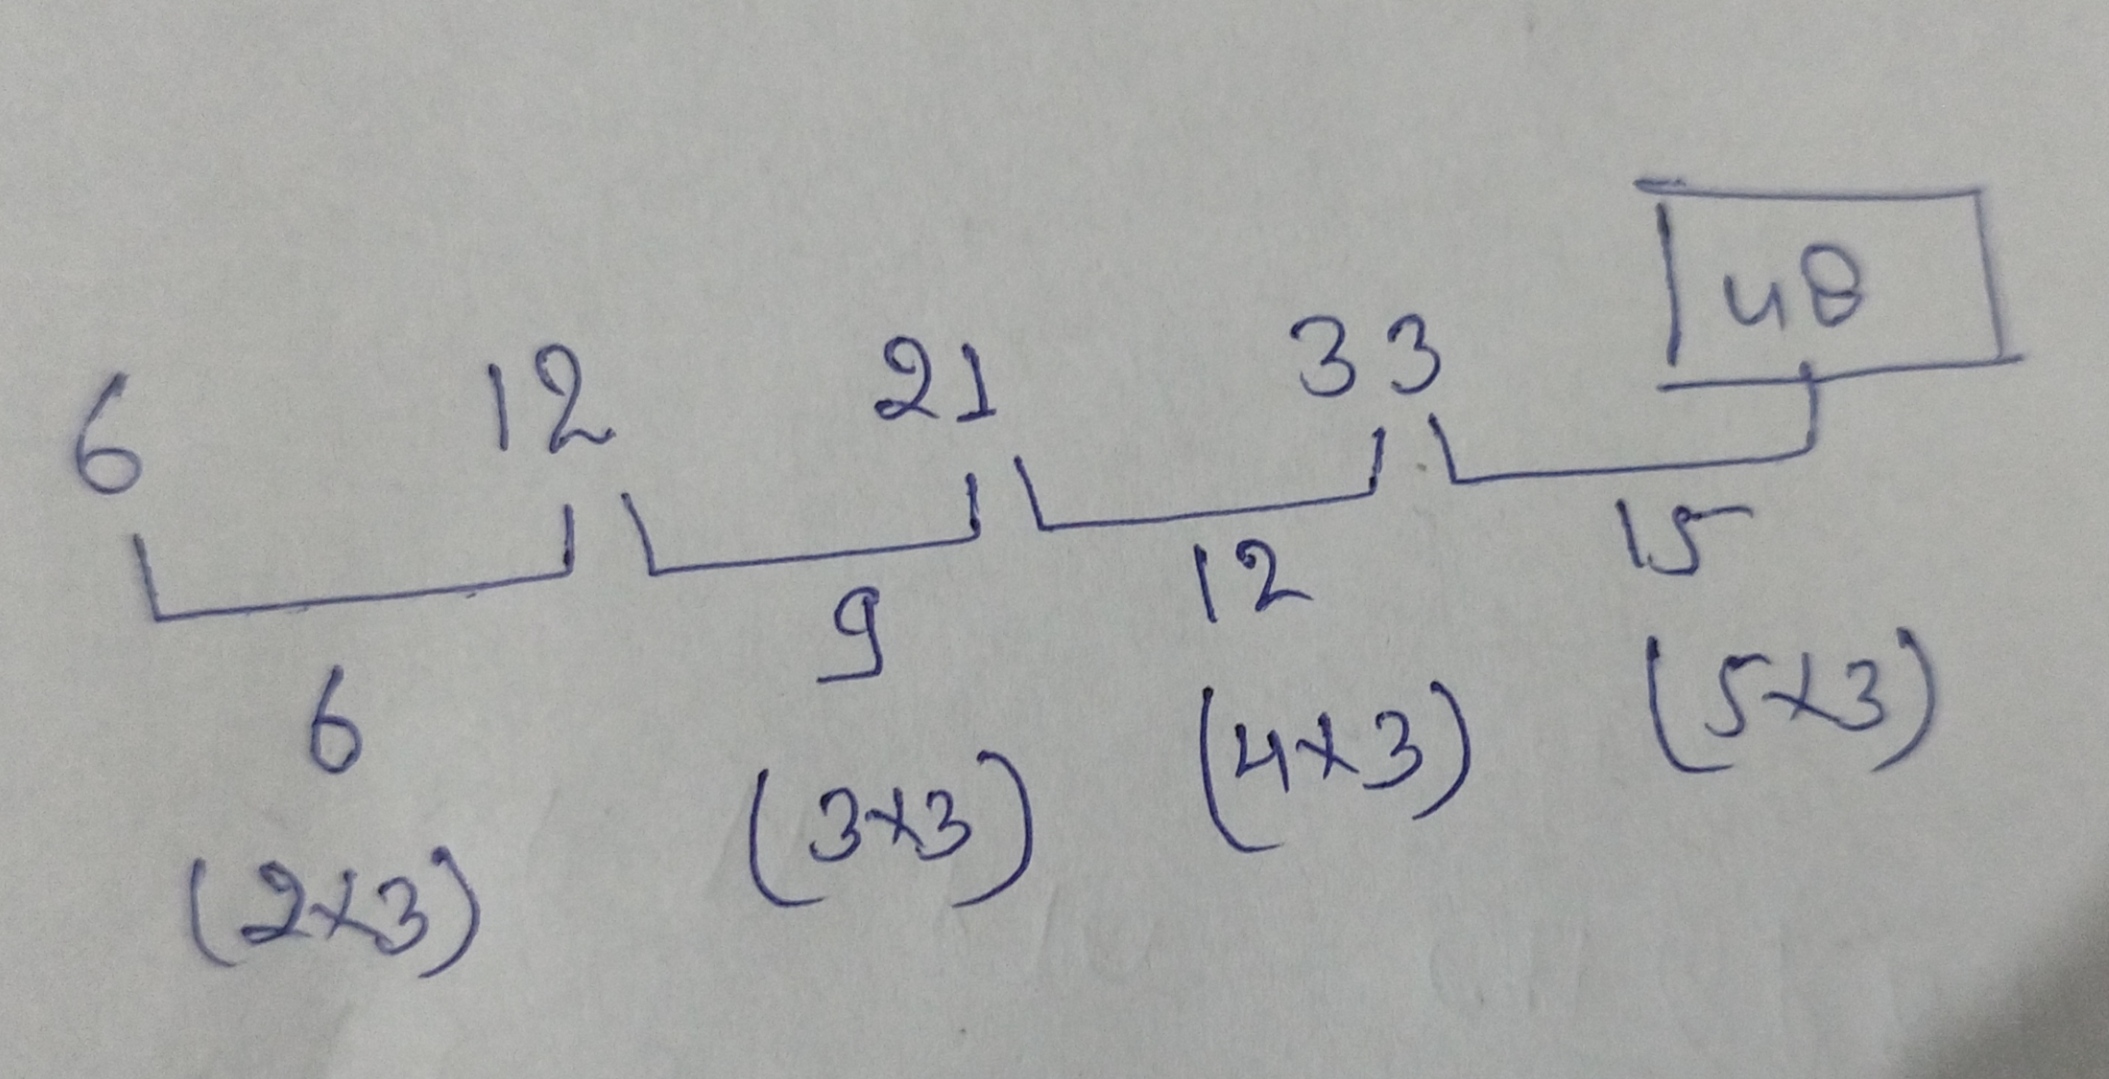 6 12 21 33 48
6 9 12 15
(2×3) (3×3) (4×3) (5×3)